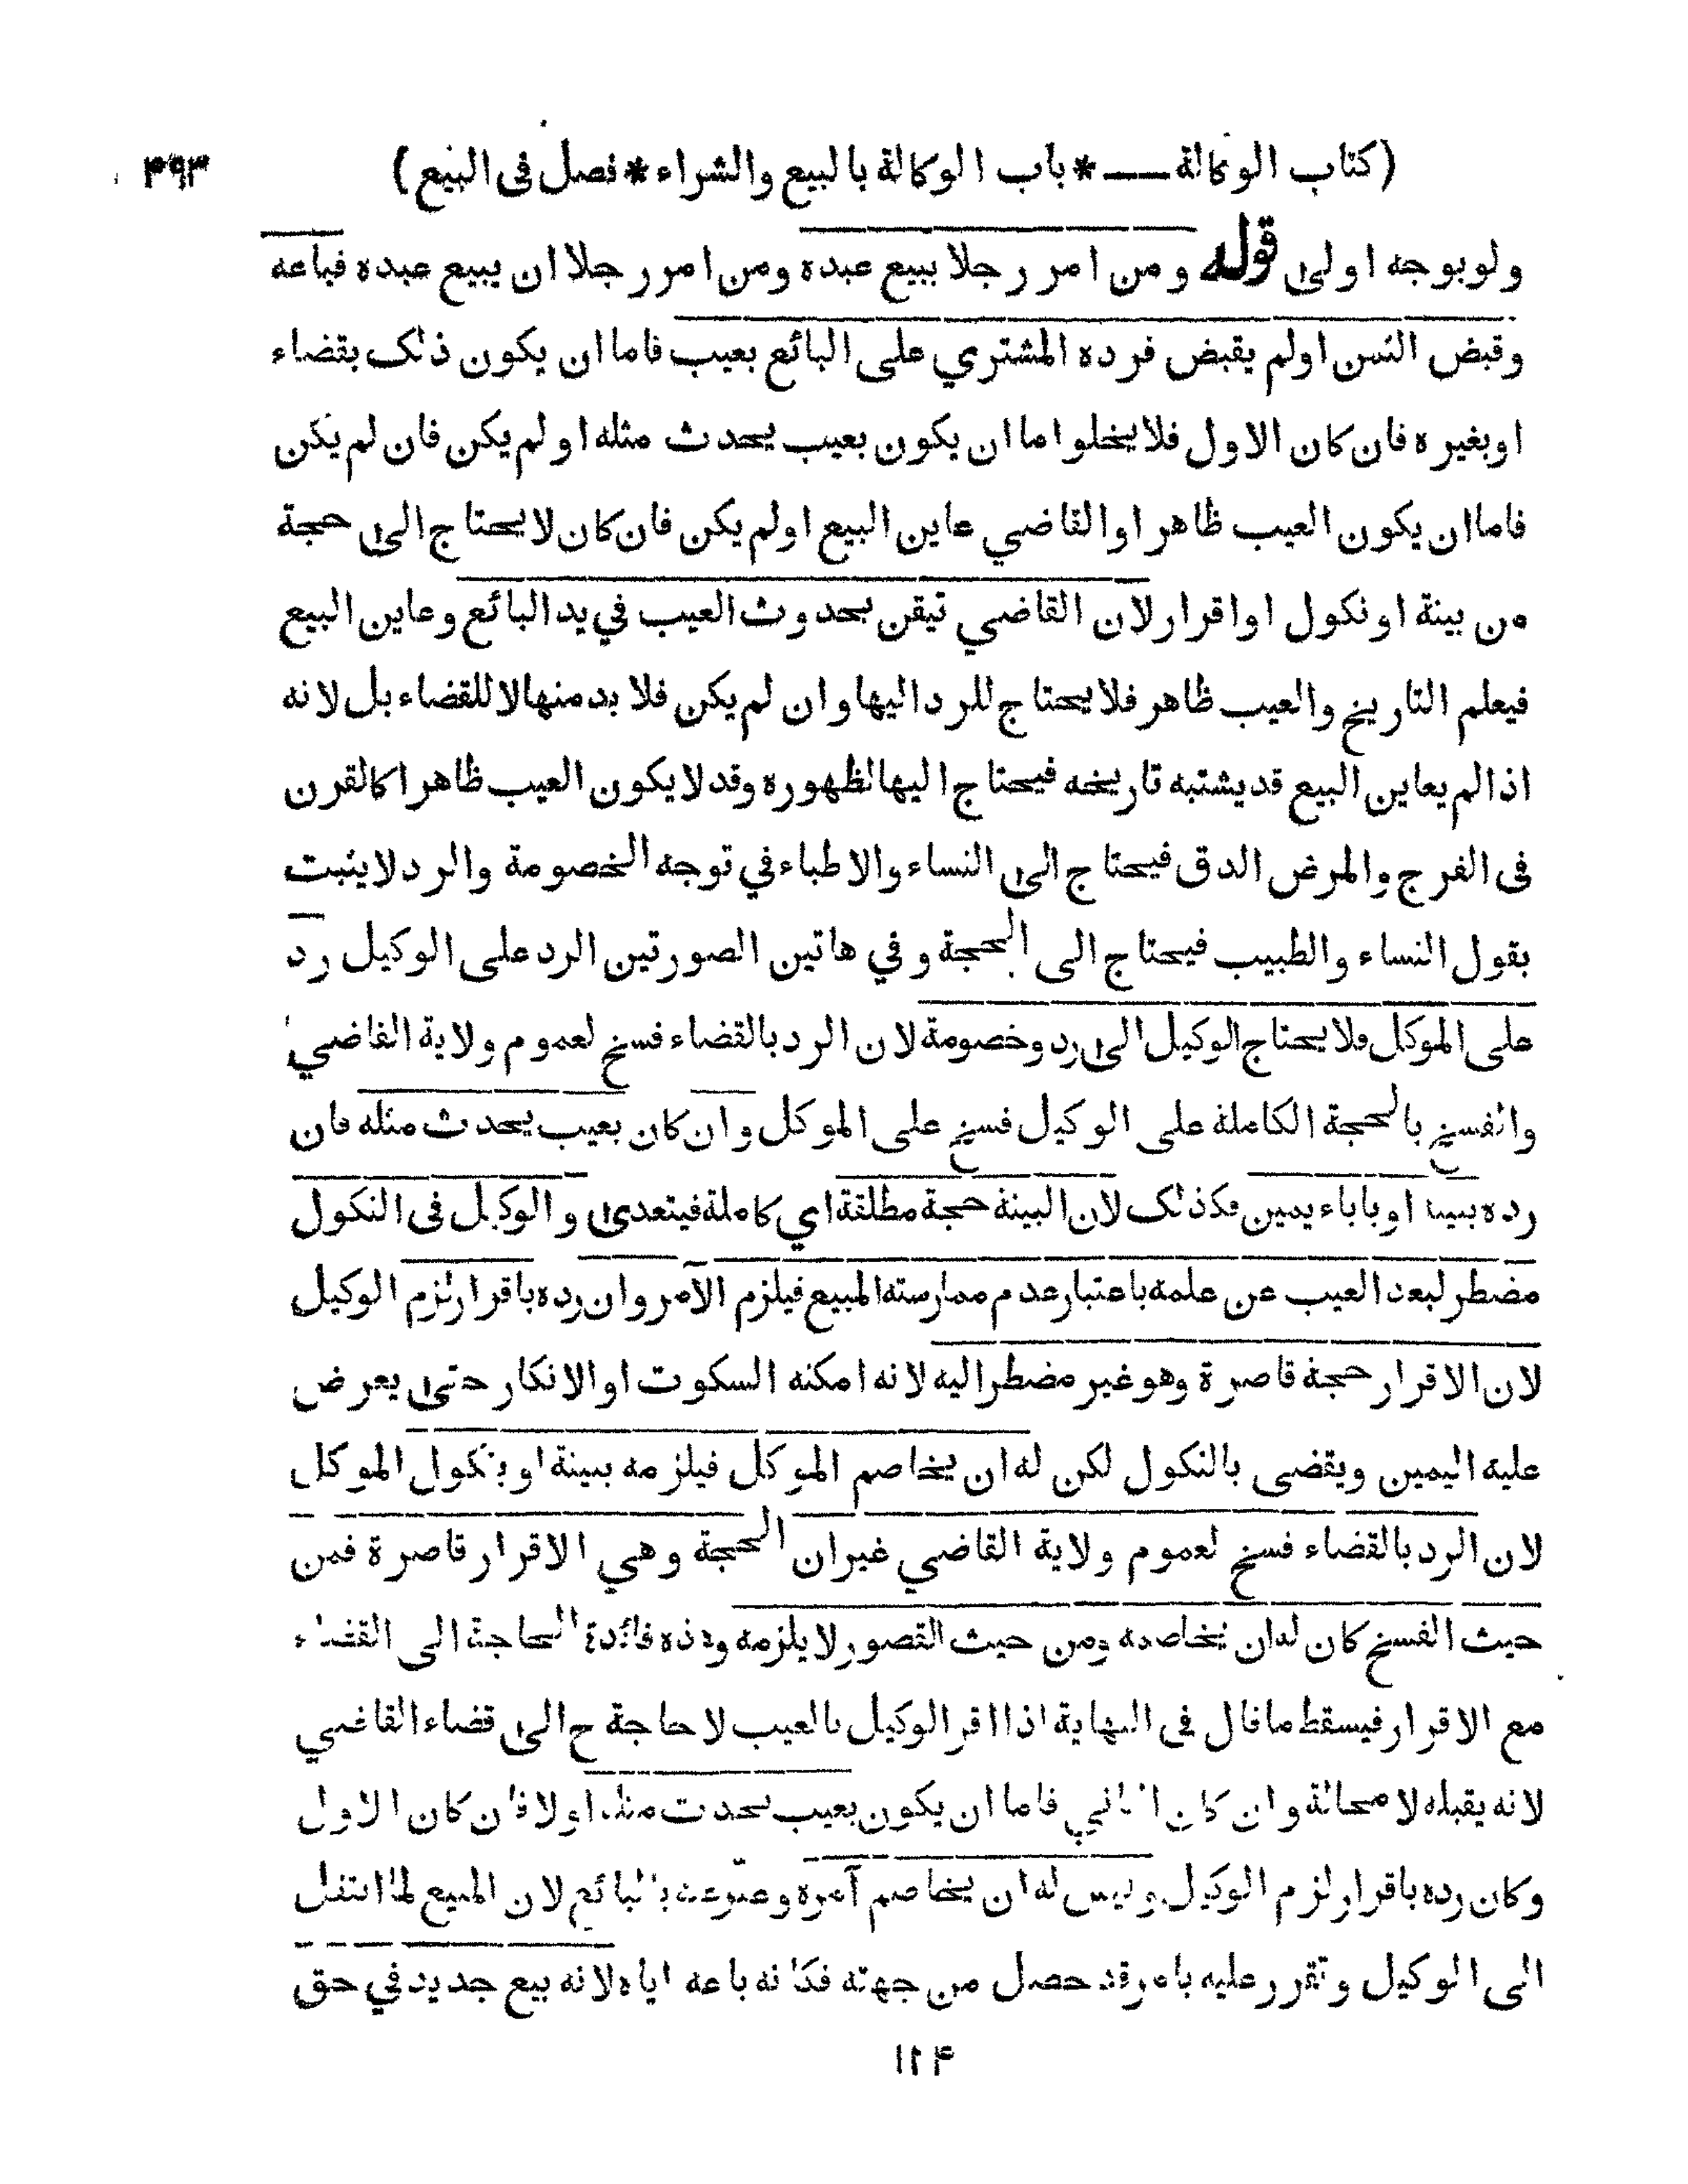 (كتاب الوكالة — * باب الوكالة بالبيع والشراء * فصل فى البيع) ۴۹۳
ولو بوجه اولى قوله ومن امر رجلا ببيع عبده ومن امر رجلا ان يبيع عبده فباعه
وقبض الثمن اولم يقبض فرده المشتري على البائع بعيب فاما ان يكون ذلك بقضاء
اوبغيره فان كان الاول فلا يخلو اما ان يكون بعيب يحدث مثله او لم يكن فان لم يكن
فاما ان يكون العيب ظاهرا والقاضي عاين البيع اولم يكن فان كان لا يحتاج الى حجة
من بينة او نكول او اقرار لان القاضي تيقن بحدوث العيب في يد البائع وعاين البيع
فيعلم التاريخ والعيب ظاهر فلا يحتاج للرد اليها وان لم يكن فلا بد منها لا للقضاء بل لانه
اذا لم يعاين البيع قد يشتبه تاريخه فيحتاج اليها لظهوره وقد لا يكون العيب ظاهرا كالقرن
فى الفرج والمرض الدق فيحتاج الى النساء والاطباء في توجه الخصومة والرد لا يثبت
بقول النساء والطبيب فيحتاج الى الحجة وفي هاتين الصورتين الرد على الوكيل رد
على الموكل فلا يحتاج الوكيل الى رد وخصومة لان الرد بالقضاء فسخ لعموم ولاية القاضي
والفسخ بالحجة الكاملة على الوكيل فسخ على الموكل وان كان بعيب يحدث مثله فان
رده ببينة اوباباء يمين فكذلك لان البينة حجة مطلقة اي كاملة فيتعدى والوكيل فى النكول
مضطر لبعد العيب عن علمه باعتبار عدم ممارسته المبيع فيلزم الآمر وان رده باقرار لزم الوكيل
لان الاقرار حجة قاصرة وهو غير مضطر اليه لانه امكنه السكوت او الانكار حتى يعرض
عليه اليمين ويقضى بالنكول لكن له ان يخاصم الموكل فيلزمه ببينة او بنكول الموكل
لان الرد بالقضاء فسخ لعموم ولاية القاضي غير ان الحجة وهي الاقرار قاصرة فمن
حيث الفسخ كان له ان يخاصمه ومن حيث القصور لا يلزمه وهذه فائدة الحاجة الى القضاء
مع الاقرار فيسقط ما قال فى النهاية اذا اقر الوكيل بالعيب لا حاجة ح الى قضاء القاضي
لانه يقبله لا محالة وان كان الثاني فاما ان يكون بعيب يحدث مثله اولا فان كان الاول
وكان رده باقرار لزم الوكيل وليس له ان يخاصم آمره وعبر عنه بالبائع لان المبيع لما انتقل
الى الوكيل وتقرر عليه بامر قد حصل من جهته فكانه باعه اياه لانه بيع جديد في حق
۱۲۴